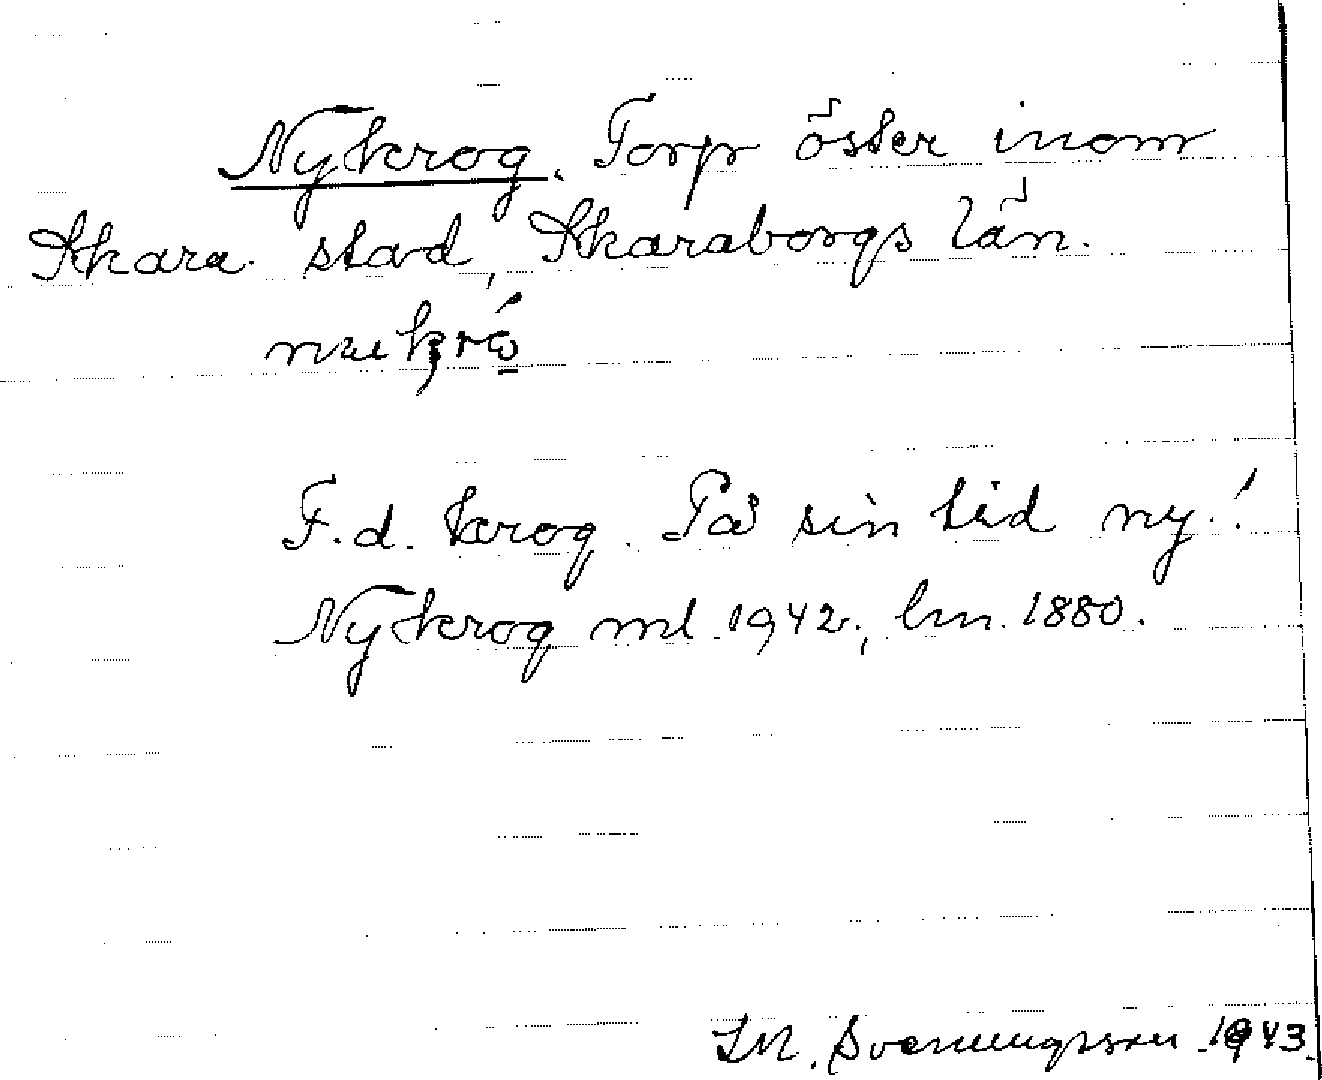 Nykrog. Torp öster inom
Skara stad, Skaraborgs län.
F.d. krog. På sin tid ny!
Nykrog ml 1942, lm. 1880.
Svenningsson 1943